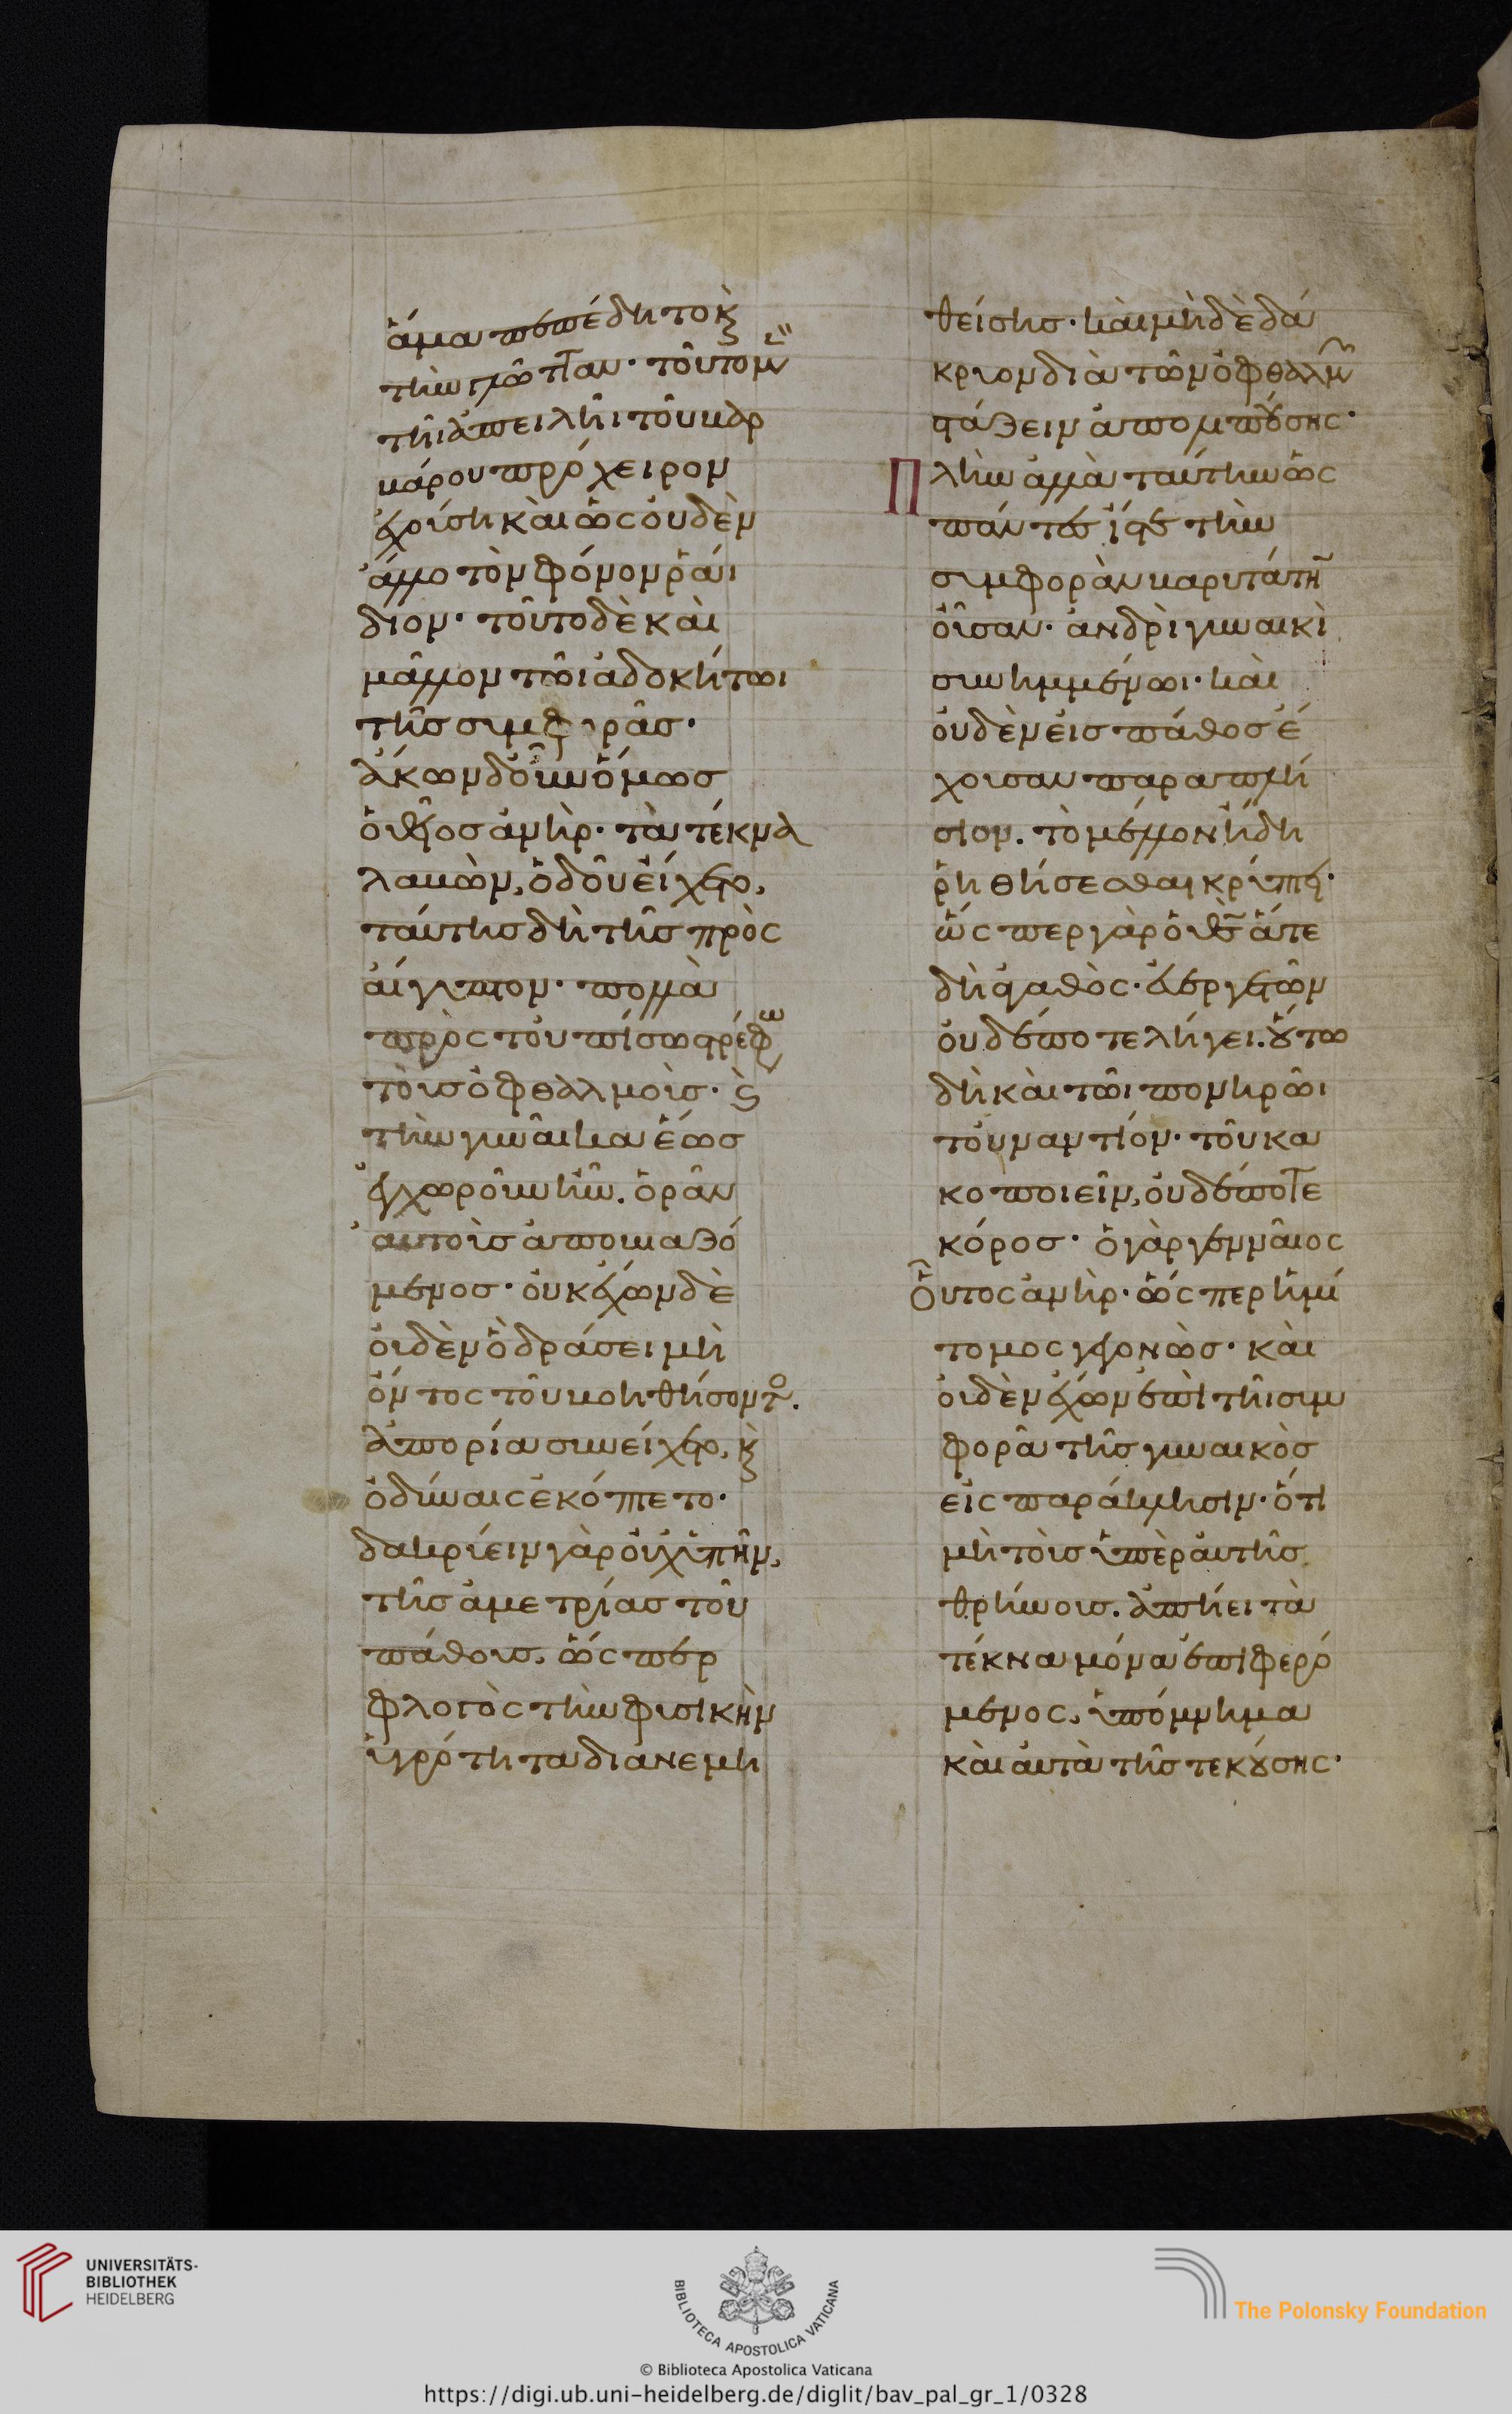 ἅμα ἐπέδητο κ(αὶ)
τὴν γλῶτταν· τοῦτο μ(ὲν)
τῆι ἀπειλῆι τοῦ βαρ
βάρου πρόχειρον
ἔχοντι καὶ ὡς οὐδὲν
ἄλλο τὸν φόνον ῥάι
διον· τοῦτο δὲ καὶ
μᾶλλον τῶι ἀδοκήτωι
τῆς συμφορᾶς·
ἄκων δ' οὖν ὅμως
ὁ θεῖος ἀνὴρ· τὰ τέκνα
λαβὼν, ὁδοῦ εἴχετο,
ταύτης δὴ τῆς πρὸς
αἴγυπτον· πολλὰ
πρὸς τοὐπίσω στρέφω(ν)
τοὺς ὀφθαλμοὺς· κ(αὶ)
τὴν γυναῖκα ἕως
ἐγχωροῦν ἦν. ὁρᾶν
αὐτοῖς ἀποβιαζό
μενος· οὐκ ἔχων δὲ
οὐδὲν ὃ δράσει μὴ
ὄντος τοῦ βοηθήσοντο(ς).
ἀπορία συνείχετο, κ(αὶ)
ὀδύναις ἐκόπτετο·
δακρύειν γὰρ οὐχ ὑπῆν,
τῆς ἀμετρίας τοῦ
πάθους, ὥσπερ
φλογὸς τὴν φυσικὴν
ὑγρότητα διανεμη
θείσης· καὶ μηδὲ δά
κρυον διὰ τῶν ὀφθαλμῶ(ν)
στάζειν ἀπολιπούσης·
Πλὴν ἀλλὰ ταύτην ὡς
πάντες ἴστε τὴν
συμφορὰν βαρυτάτην
οὖσαν· ἀνδρὶ γυναικὶ
συνημμένωι· καὶ
οὐδὲν εἰς πάθος ἔ
χουσαν παραπλή
σιον. τὸ μέλλον ἤδη
ῥηθήσεσθαι κρύπτει·
ὥσπερ γὰρ ὁ θ(εὸ)ς ἅτε
δὴ ἀγαθὸς· εὐεργετῶν
οὐδέποτε λήγει. οὕτω
δὴ καὶ τῶι πονηρῶι
τοὐναντίον· τοῦ κα
κοποιεῖν, οὐδέποτε
κόρος· ὁ γὰρ γενναῖος
οὗτος ἀνὴρ· ὥσπερ ἡμί
τομος γεγονὼς· καὶ
οὐδὲν ἔχων ἐπὶ τῆι συμ
φορᾶ τῆς γυναικὸς
εἰς παράκλησιν· ὅτι
μὴ τοῖς ὑπὲρ αὐτῆς
θρήνοις. ἀπήιει τὰ
τέκνα μόνα ἐπιφερό
μενος, ὑπόμνημα
καὶ αὐτὰ τῆς τεκούσης·
UNIVERSITÄTS-
BIBLIOTHEK
HEIDELBERG
BIBLIOTECA APOSTOLICA VATICANA
The Polonsky Foundation
© Biblioteca Apostolica Vaticana
https://digi.ub.uni-heidelberg.de/diglit/bav_pal_gr_1/0328